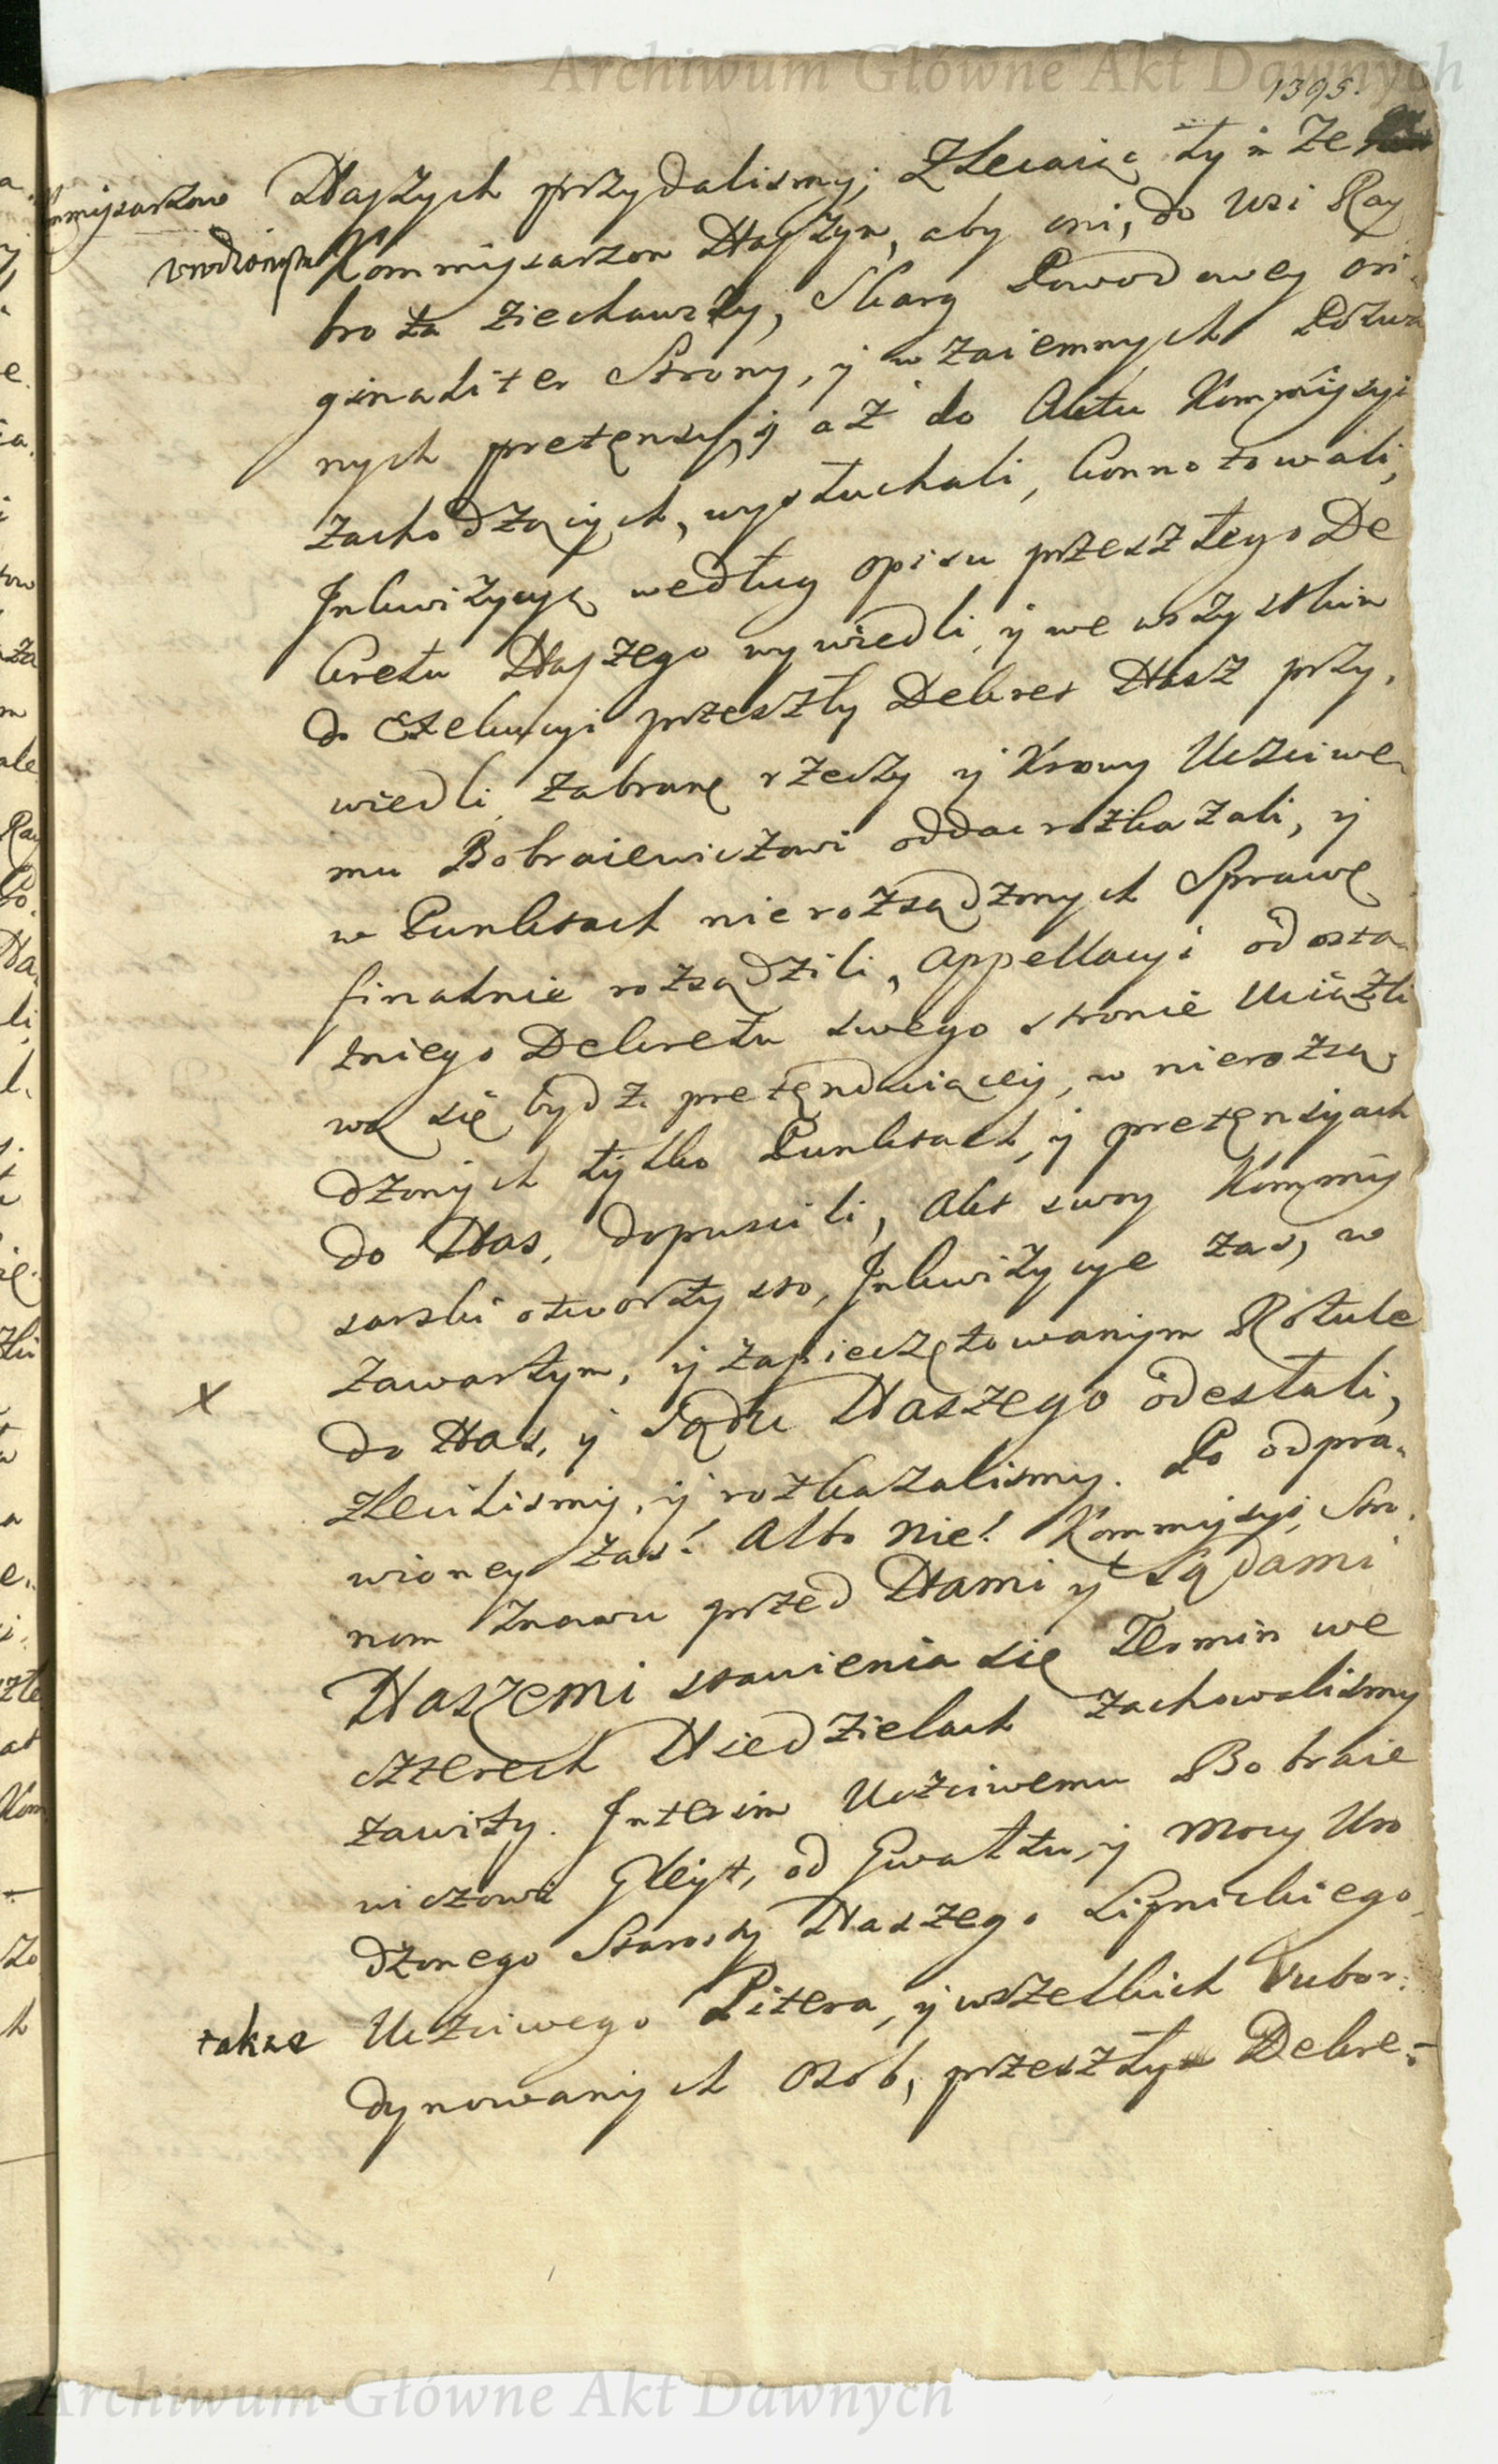 Archiwum Główne Akt Dawnych
1395.
Kommysarzow Naszych przydalismy, Zlecaiąc tym że
Urodzonym Kommysarzom Naszym, aby oni, do wsi Ray
brota ziechawszy, Skarg Powodowey ori-
ginaliter Strony, y wzaiemnych Pozwa
nych pretensyi aż do Aktu Kommissyi
zachodzących, wysłuchali, konnotowali,
Inkwizycyę według opisu przeszłego De
kretu Naszego wywiedli, y we wszystkim
do Exekucyi przeszły Dekret Nasz przy-
wiedli, zabrane rzeczy y Krowy Uczciwe-
mu Bobraiewiczowi oddac rozkazali, y
w Punktach nierozsądzonych Sprawę
finalnie rozsądzili, appellacyi od osta-
tniego Dekretu swego stronie Uciążli
wą się bydź pretenduiącey, w nierozsą-
dzonych tylko Punktach, y pretensyach
do Nas, dopuscili, Akt swoy Kommis
sarski otworzysto, Inkwizycye zas, w
zawartym, y zapieczętowanym Rotule
x
do Nas, y Sądu Naszego odesłali,
zlecilismy, y rozkazalismy. Po odpra-
wioney zas! Albo nie! Kommissyi, Stro-
nom znowu przed Nami y Sądami
Naszemi stawienia się Termin we
czterech Niedzielach zachowalismy
zawity. Interim Uczciwemu Bobraie
wiczowi Gleyt, od Gwałtu, y Mocy Uro
dzonego Starosty Naszego Lipnickiego,
takze Uczciwego Pitera, y wszelkich Subor-
dynowanych Osob, przeszłym Dekre-
Archiwum Główne Akt Dawnych